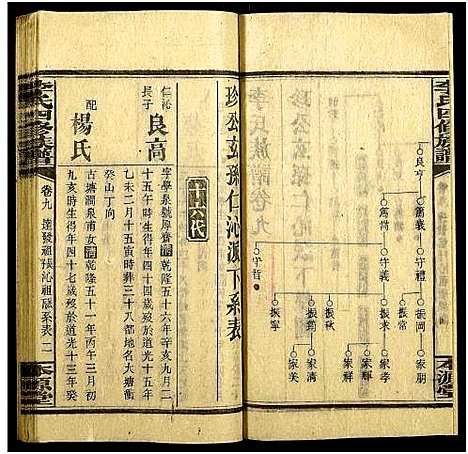 李氏四修族譜
良亨
篤義
守禮
振岡
家朋
振常
篤尚
守義
振求
家孝
家祥
守哲
振秋
振鵠
家清
家美
振寧
本源堂
珍公玄孫仁沁派下系表
十六代
仁沁長子
良高
字學泉號厚齋清乾隆五十六年辛亥九月二
十五午時生得年四十四歲歿於道光十五年
乙未二月十五寅時葬三十八都地名大塘衝
癸山丁向
配
楊氏
古塘澗泉甫女清乾隆五十一年丙午三月初
九亥時生得年四十七歲歿於道光十三年癸
李氏四修族譜
卷九
達發祖扶沁祖派系表
二
本源堂